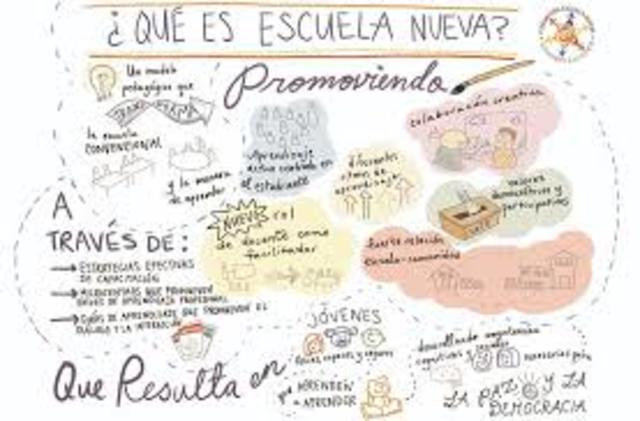 ¿QUÉ ES ESCUELA NUEVA?
Un modelo
pedagógico que
TRANSFORMA
la escuela
CONVENCIONAL
y la manera
de aprender
Promoviendo
Aprendizaje
activo centrado en
el estudiante
diferentes
ritmos de
aprendizaje
colaboración creativa
valores
democráticos y
participativos
VOTE
NUEVO rol
de docente como
facilitador
fuerte relación
escuela-comunidad
A
TRAVÉS DE:
ESTRATEGIAS EFECTIVAS
DE CAPACITACIÓN
MICROCENTROS QUE PROMUEVEN
DE APRENDIZAJE PROFESIONAL
GUÍAS DE APRENDIZAJE QUE PROMUEVEN EL
DIÁLOGO Y LA INTERACCIÓN
Que Resulta en
JÓVENES
capaces y seguros
que APRENDEN
a APRENDER
desarrollando competencias
cognitivas y sociales
necesarias para
LA PAZ Y LA
DEMOCRACIA